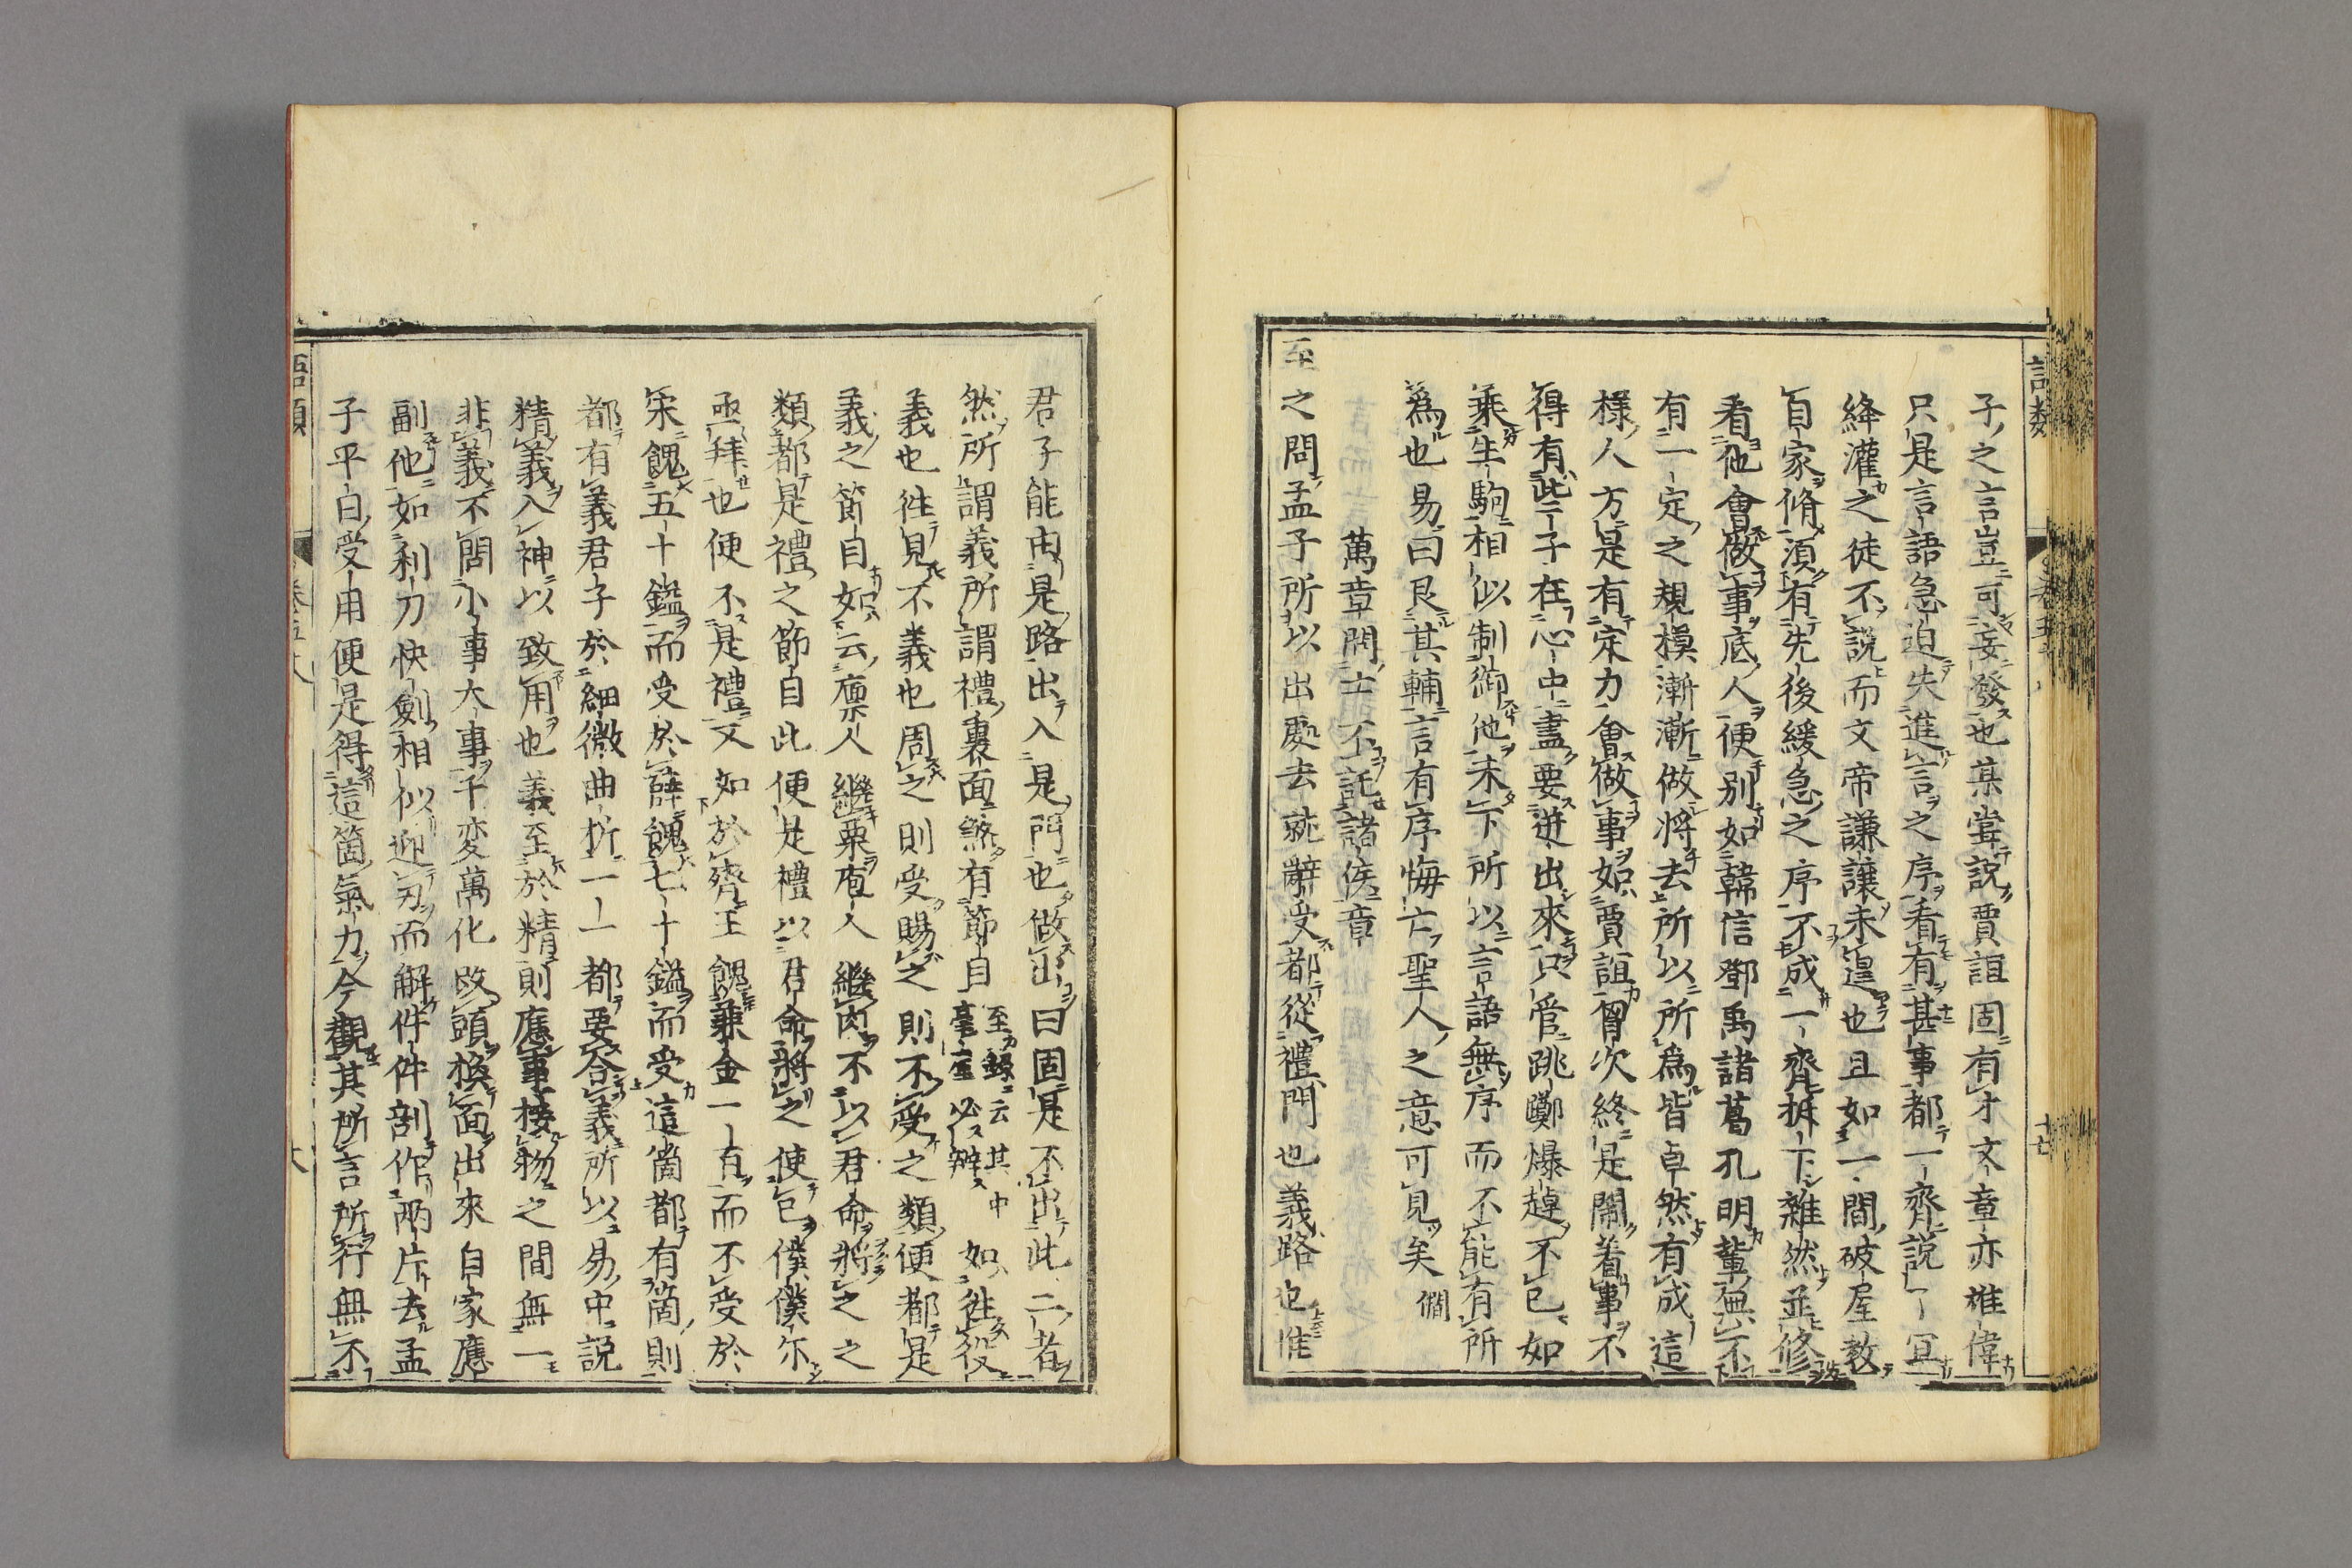 子之言豈可妄發也某嘗說賈誼固有才文章亦雄偉
只是言語急迫失進言之序看有甚事都一齊說一
絳灌之徒不說而文帝謙讓未遑也且如一間破屋教
自家脩須有先後緩急之序不成一齊拆下雜然並修
看他會做事底人便別如韓信鄧禹諸葛孔明輩無不
有一定之規模漸漸做將去所以所為皆卓然有成這
樣人方是有定力會做事如賈誼胷次終是鬧着事不
得有些子在心中盡要迸出來只管跳躑爆趠不已如
乘生駒相似制御他未下所以言語無序而不能有所
為也易曰艮其輔言有序悔亡聖人之意可見矣 僩
萬章問士不託諸侯章
至之問孟子所以出處去就辭受都從禮門也義路也惟
君子能由是路出入是門也做出曰固是不出此二者
然所謂義所謂禮裏面煞有節目 至錄云其中毫釐必辯 如徃役
義也徃見不義也周之則受賜之則不受之類便都是
義之節目如云廩人繼粟庖人繼肉不以君命將之之
類都是禮之節目此便是禮以君命將之使己僕僕尓
亟拜也便不是禮又如於齊王餽兼金一百而不受於
宋餽五十鎰而受於薛餽七十鎰而受這箇都有箇則
都有義君子於細微曲折一一都要合義所以易中說
精義入神以致用也義至於精則應事接物之間無一
非義不問小事大事千変萬化改頭換面出來自家應
副他如利刀快劍相似迎刃而解件件剖作兩片去孟
子平日受用便是得這箇氣力今觀其所言所行無不
語類